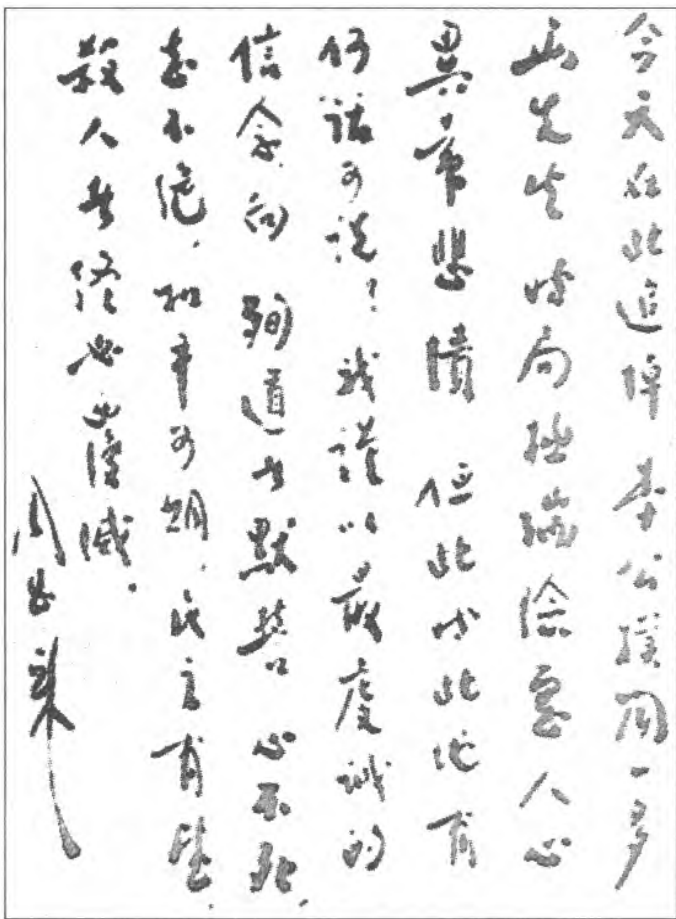 今天在此追悼李公樸聞一多
两先生时局极端险恶人心
異常悲憤但此时此地有
何話可说?我謹以最虔诚的
信念向殉道者默誓心不死,
志不绝,和平可期,民主有望,
殺人者终必覆滅.
周恩来